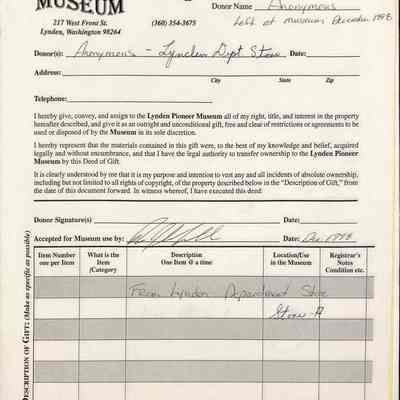 MUSEUM
217 West Front St. (360) 354-3675
Lynden, Washington 98264
Donor Name Anonymous
Left at museum December 1998
Donor(s): Anonymous - Lynden Dept Store Date:
Address:
City State Zip
Telephone:
I hereby give, convey, and assign to the Lynden Pioneer Museum all of my right, title, and interest in the property
hereafter described, and give it as an outright and unconditional gift, free and clear of restrictions or agreements to be
used or disposed of by the Museum in its sole discretion.
I hereby represent that the materials contained in this gift were, to the best of my knowledge and belief, acquired
legally and without encumbrance, and that I have the legal authority to transfer ownership to the Lynden Pioneer
Museum by this Deed of Gift.
It is clearly understood by me that it is my purpose and intention to vest any and all incidents of absolute ownership,
including but not limited to all rights of copyright, of the property described below in the "Description of Gift," from
the date of this document forward. In witness whereof, I have executed this deed:
Donor Signature(s) Date:
Accepted for Museum use by: Date: Dec. 1998
Item Number one per Item What is the Item /Category Description One Item @ a time Location/Use in the Museum Registrar's Notes Condition etc.
From Lynden Department Store
Store-A
DESCRIPTION OF GIFT: (Make as specific as possible)